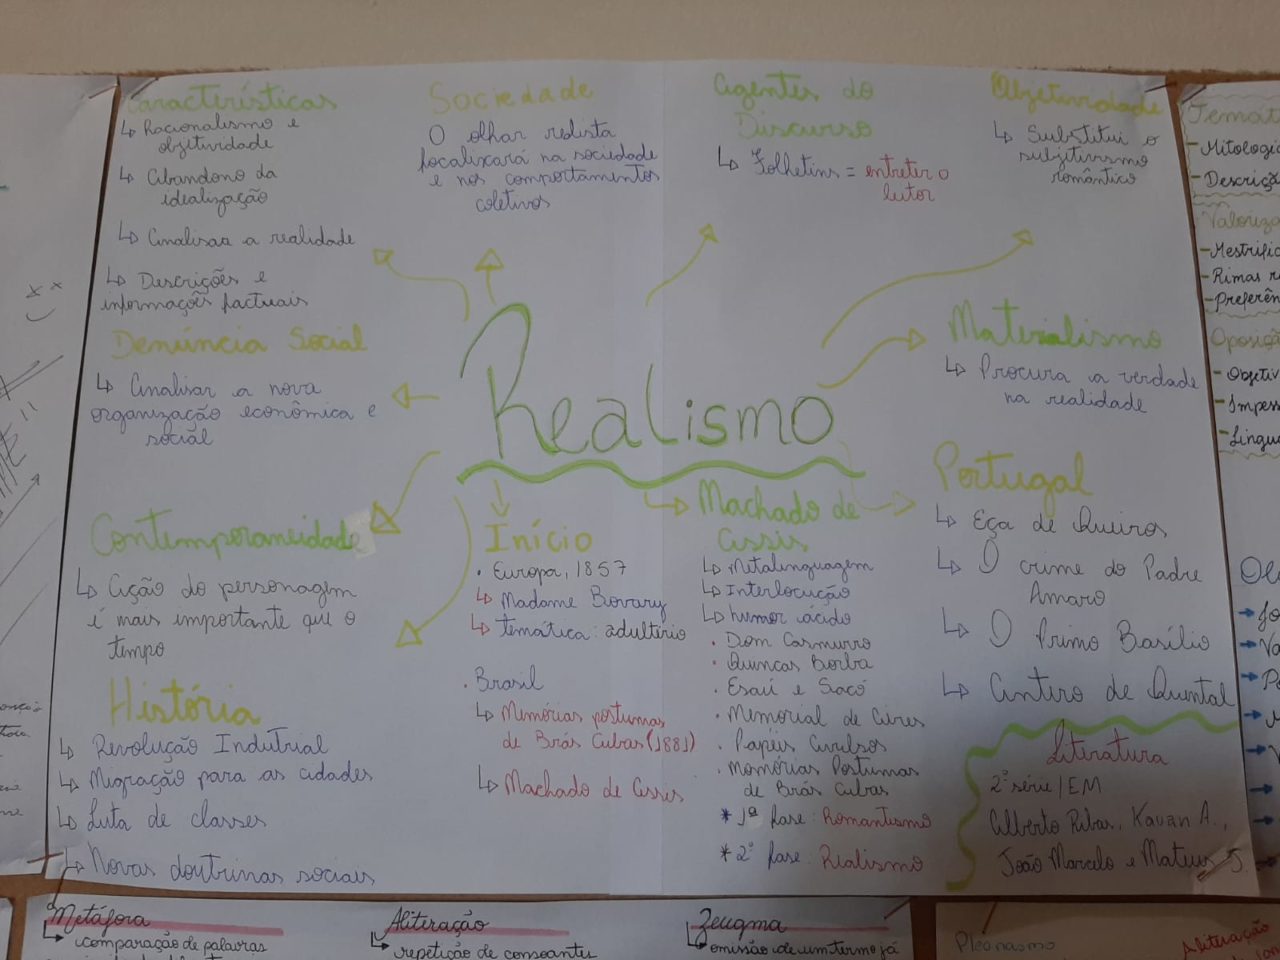 Características
↳ Racionalismo e
objetividade
↳ Abandono da
idealização
↳ Analisar a realidade
↳ Descrições e
informações factuais
Sociedade
O olhar realista
focalizará na sociedade
e nos comportamentos
coletivos
Agentes do
Discurso
↳ Folhetins = entreter o
leitor
Objetividade
↳ Substitui o
subjetivismo
romântico
Denúncia Social
↳ Analisar a nova
organização econômica e
social
Realismo
Materialismo
↳ Procura a verdade
na realidade
Contemporaneidade
↳ Ação do personagem
é mais importante que o
tempo
História
↳ Revolução Indutrial
↳ Migração para as cidades
↳ Luta de classes
↳ Novas doutrinas sociais
Início
• Europa, 1857
↳ Madame Bovary
↳ temática: adultério
• Brasil
↳ Memórias postumas
de Brás Cubas (1881)
↳ Machado de Assis
Machado de
Assis
↳ Metalinguagem
↳ Interlocução
↳ humor ácido
• Dom Casmurro
• Quincas Borba
• Esaú e Jacó
• Memorial de Aires
• Papéis Avulsos
• Memórias Postumas
de Brás Cubas
* 1ª fase: Romantismo
* 2ª fase: Realismo
Portugal
↳ Eça de Queiros
↳ O crime do Padre
Amaro
↳ O Primo Basílio
↳ Antero de Quental
Literatura
2ª série/EM
Alberto Ribas, Kauan A.,
João Marcelo e Mateus J.
- Mitologia
- Descriçã
- Rimas
- Preferên
- Objetiv
- Impess
- Lingua
Metáfora
↳ comparação de palavras
Aliteração
↳ repetição de consoantes
Zeugma
↳ omissão de um termo já
Pleonasmo
Aliteração